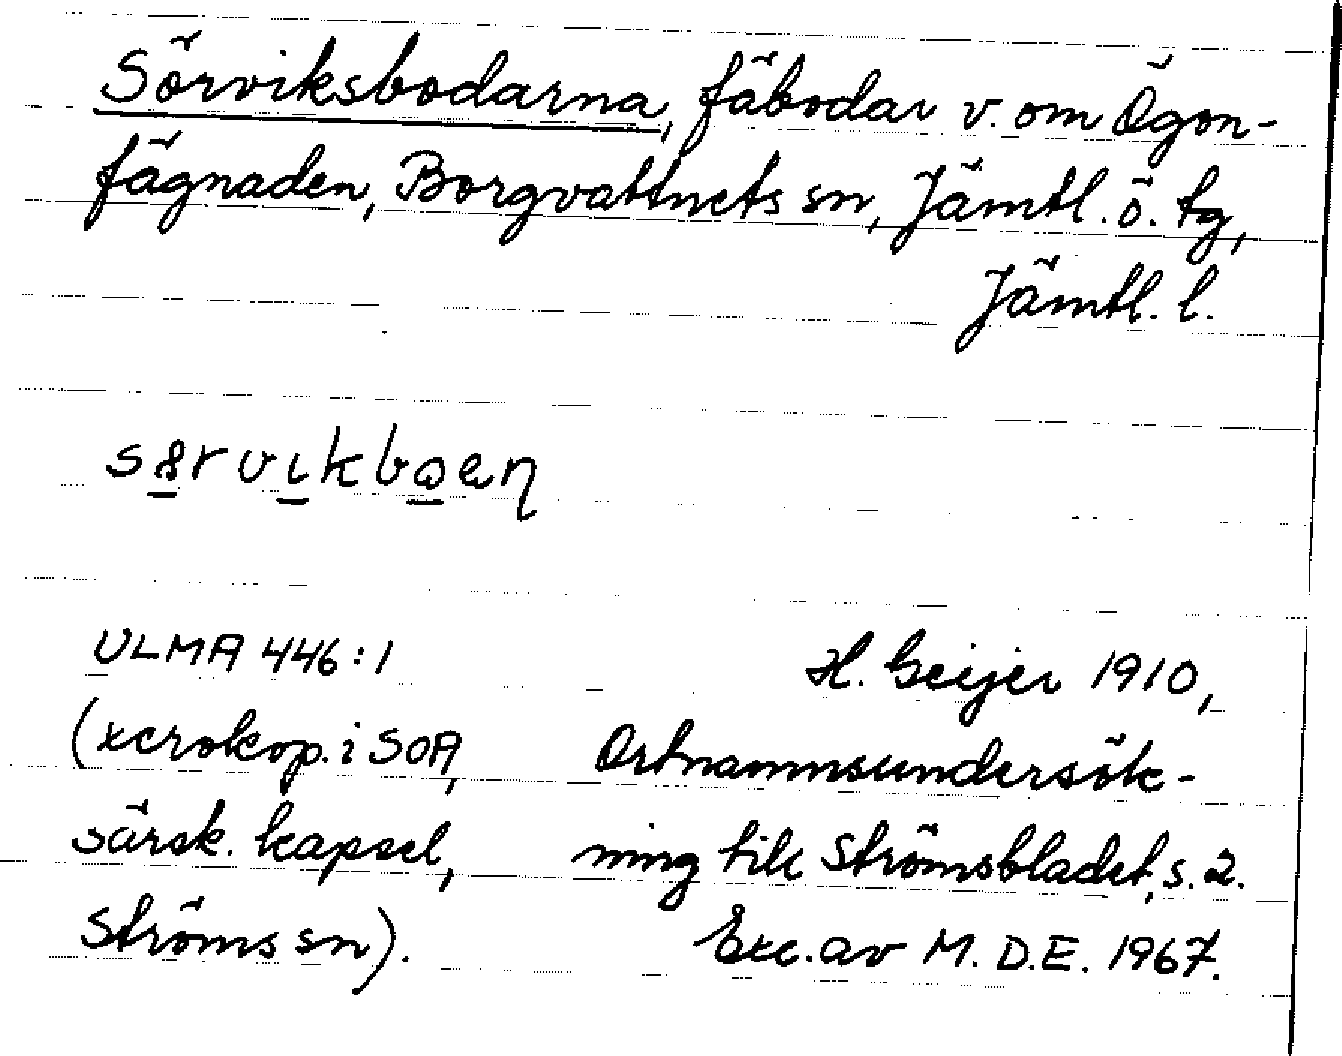 Sörviksbodarna, fäbodar v. om Ögon-
fägnaden, Borgvattnets sn, Jämtl. ö. tg,
Jämtl. l.
sørvikboen
ULMA 446:1
(xerokop. i SOA,
särsk. kapsel,
Ströms sn).
H. Geijer 1910,
Ortnamnsundersök-
ning till Strömsbladet, s. 2.
Exc. av M. D. E. 1967.